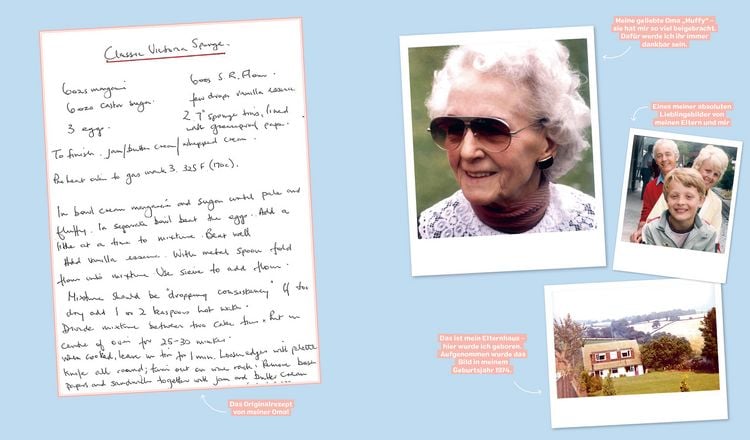 Classic Victoria Sponge.
6ozs margarine
6ozs castor sugar
3 eggs.
6ozs S.R. Flour.
few drops vanilla essence
2 7" sponge tins, lined
with greaseproof paper.
To finish. jam/butter cream/whipped cream.
Pre heat oven to gas mark 3. 325F (170c).
In bowl cream margarine and sugar until pale and
fluffy. In separate bowl beat the eggs. Add a
little at a time to mixture. Beat well
Add vanilla essence. With metal spoon fold
flour into mixture Use sieve to add flour.
Mixture should be "dropping consistency" If too
dry add 1 or 2 teaspoons hot water.
Divide mixture between two cake tins. Put in
centre of oven for 25-30 minutes.
when cooked, leave in tin for 1 min. Loosen edges with palette
knife all round; turn out on wire rack. Remove
papers and sandwich together with jam and butter cream
Das Originalrezept
von meiner Oma!
Meine geliebte Oma „Huffy“ –
sie hat mir so viel beigebracht.
Dafür werde ich ihr immer
dankbar sein.
Eines meiner absoluten
Lieblingsbilder von
meinen Eltern und mir
Das ist mein Elternhaus –
hier wurde ich geboren.
Aufgenommen wurde das
Bild in meinem
Geburtsjahr 1974.